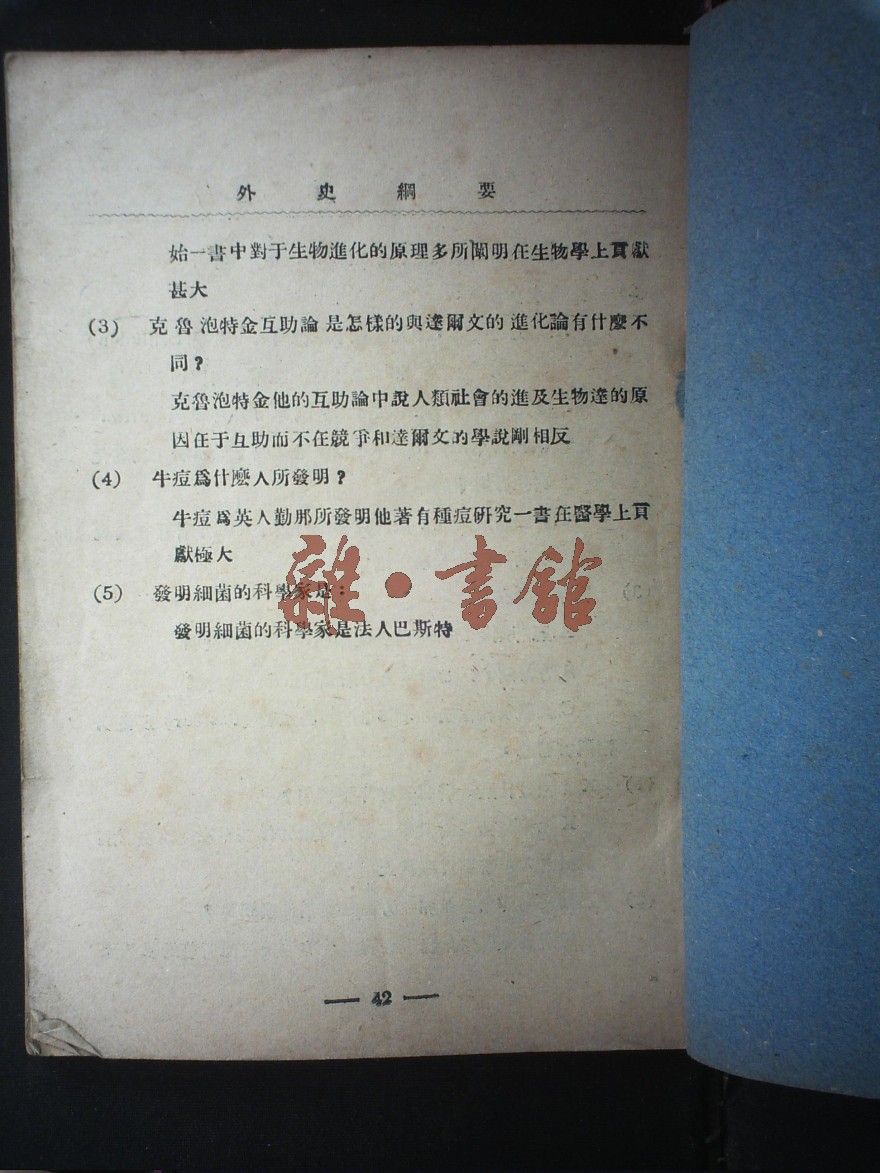 外史綱要
始一書中對于生物進化的原理多所闡明在生物學上貢獻
甚大
(3) 克魯泡特金互助論是怎樣的與達爾文的進化論有什麼不
同？
克魯泡特金他的互助論中說人類社會的進及生物達的原
因在于互助而不在競爭和達爾文的學說剛相反
(4) 牛痘爲什麽人所發明？
牛痘爲英人勤那所發明他著有種痘研究一書在醫學上貢
獻極大
(5) 發明細菌的科學家是：
發明細菌的科學家是法人巴斯特
雜・書館
— 42 —